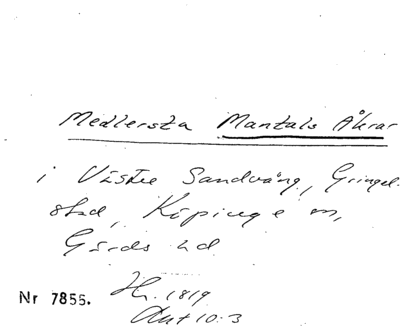 Medlersta Mantals Åkrar
i Västre Sandvång, Gringel-
stad, Köpinge sn,
Gärds hd
Nr 7855. Hr. 1819
Akt 10:3